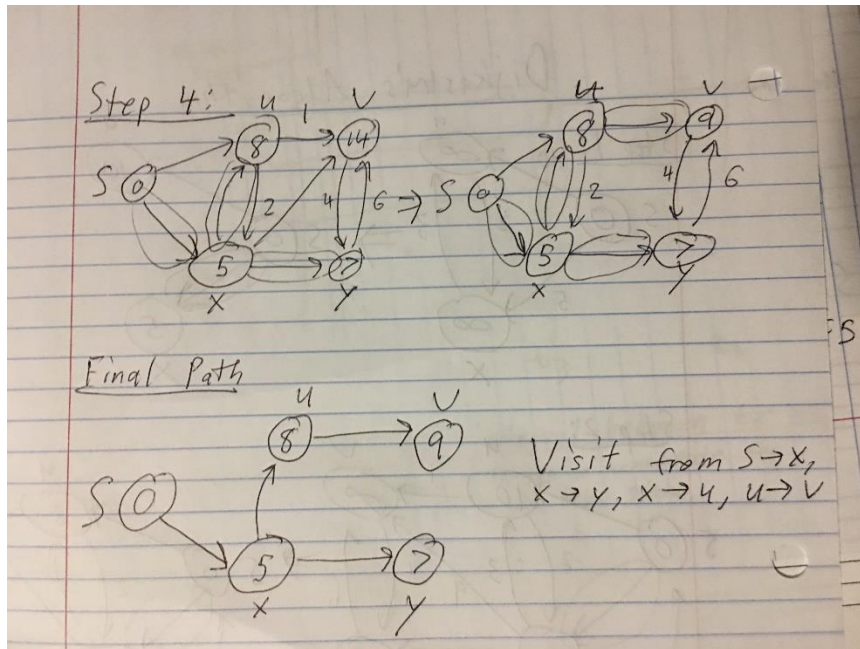 Step 4:
u 1 v
8 14
S 0
2 4 6 ⇒
5 7
x y
u v
8 9
S 0
2 4 6
5 7
x y
Final Path
u v
8 9
S 0
5 7
x y
Visit from S→x,
x→y, x→u, u→v